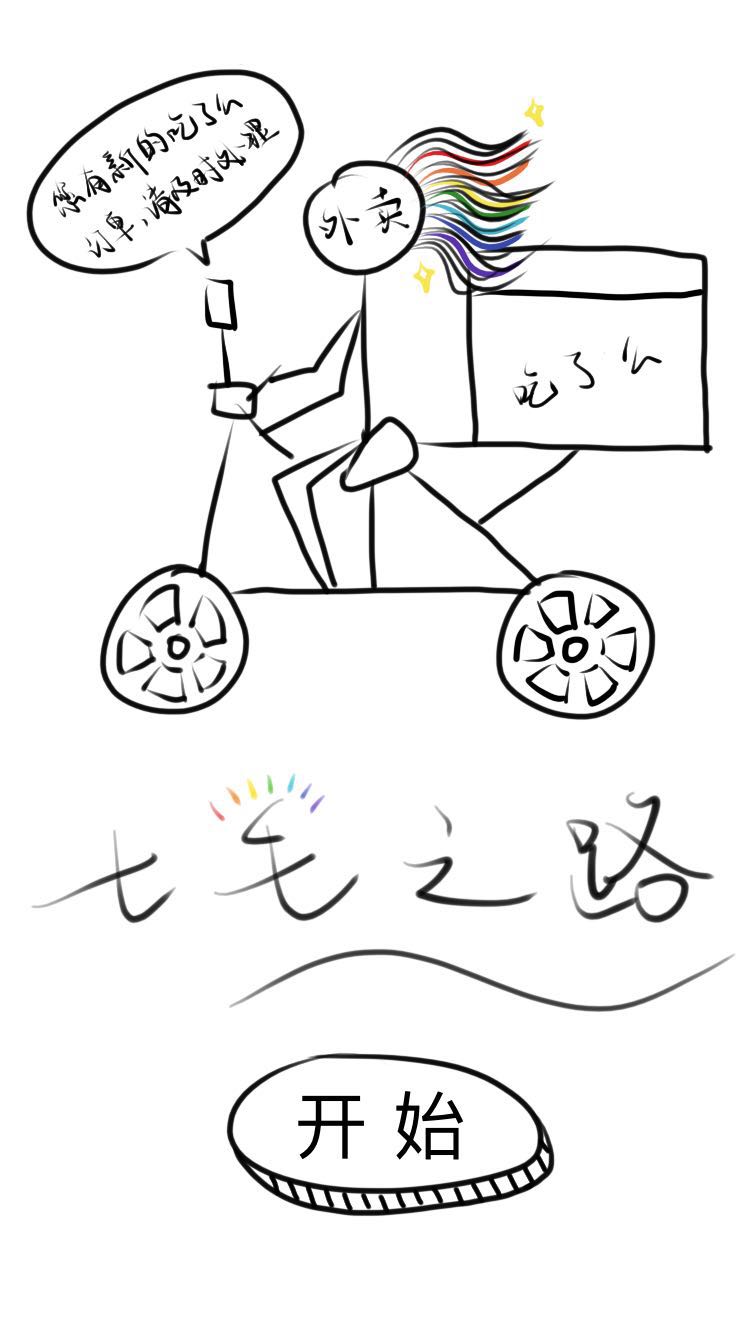 您有新的吃了么
订单，请及时处理
外卖
吃了么
七毛之路
开始